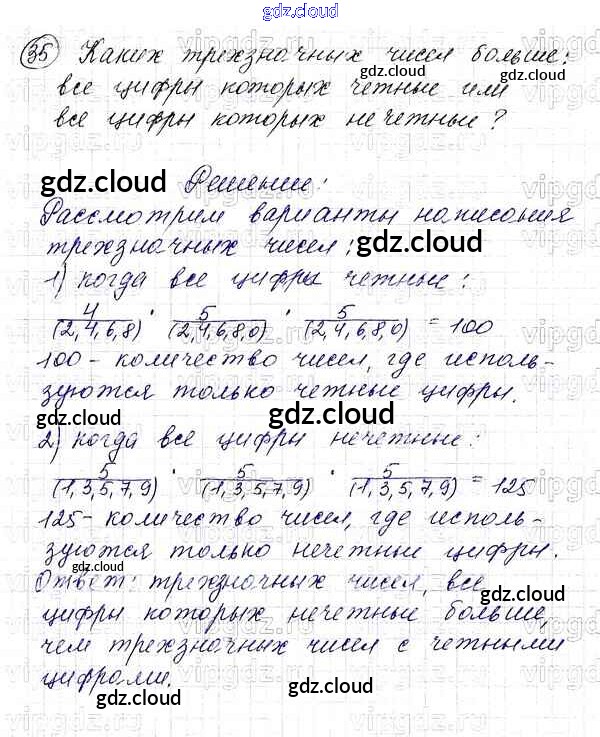 gdz.cloud
35 Каких трехзначных чисел больше:
gdz.cloud gdz.cloud
все цифры которых четные или
все цифры которых нечетные?
gdz.cloud
gdz.cloud Решение:
Рассмотрим варианты написания
трехзначных чисел: gdz.cloud
1) когда все цифры четные:
4 5 5
(2,4,6,8) · (2,4,6,8,0) · (2,4,6,8,0) = 100
gdz.cloud gdz.cloud
100 - количество чисел, где исполь-
зуются только четные цифры.
gdz.cloud gdz.cloud gdz.cloud
2) когда все цифры нечетные:
5 5 5
(1,3,5,7,9) · (1,3,5,7,9) · (1,3,5,7,9) = 125
125 - количество чисел, где исполь-
gdz.cloud gdz.cloud
зуются только нечетные цифры.
Ответ: трехзначных чисел, все
gdz.cloud
цифры которых нечетные больше,
чем трехзначных чисел с четными
цифрами. gdz.cloud
gdz.cloud gdz.cloud